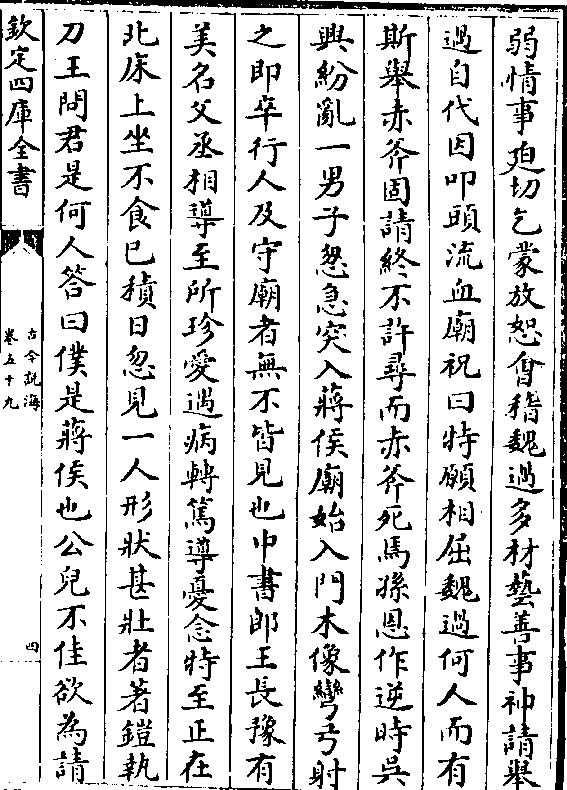 弱情事廹切乞蒙放恕會稽魏過多材藝善事神請舉
過自代因叩頭流血廟祝曰特願相屈魏過何人而有
斯舉赤斧固請終不許尋而赤斧死焉孫恩作逆時吳
興紛亂一男子怱急突入蔣侯廟始入門木像彎弓射
之即卒行人及守廟者無不皆見也中書郎王長豫有
美名父丞相導至所珍愛遇病轉篤導憂念特至正在
北床上坐不食已積日忽見一人形狀甚壯者著鎧執
刀王問君是何人答曰僕是蔣侯也公兒不佳欲為請
欽定四庫全書
古今說海
卷五十九
四